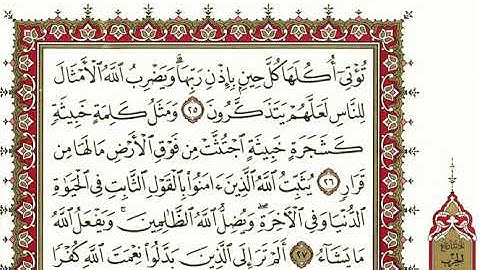 تُؤْتِىٓ أُكُلَهَا كُلَّ حِينٍۭ بِإِذْنِ رَبِّهَا ۗ وَيَضْرِبُ ٱللَّهُ ٱلْأَمْثَالَ
لِلنَّاسِ لَعَلَّهُمْ يَتَذَكَّرُونَ ٢٥ وَمَثَلُ كَلِمَةٍ خَبِيثَةٍ
كَشَجَرَةٍ خَبِيثَةٍ ٱجْتُثَّتْ مِن فَوْقِ ٱلْأَرْضِ مَا لَهَا مِن
قَرَارٍ ٢٦ يُثَبِّتُ ٱللَّهُ ٱلَّذِينَ ءَامَنُوا۟ بِٱلْقَوْلِ ٱلثَّابِتِ فِى ٱلْحَيَوٰةِ
ٱلدُّنْيَا وَفِى ٱلْءَاخِرَةِ ۖ وَيُضِلُّ ٱللَّهُ ٱلظَّٰلِمِينَ ۚ وَيَفْعَلُ ٱللَّهُ
مَا يَشَآءُ ٢٧ أَلَمْ تَرَ إِلَى ٱلَّذِينَ بَدَّلُوا۟ نِعْمَتَ ٱللَّهِ كُفْرًا
الحزب